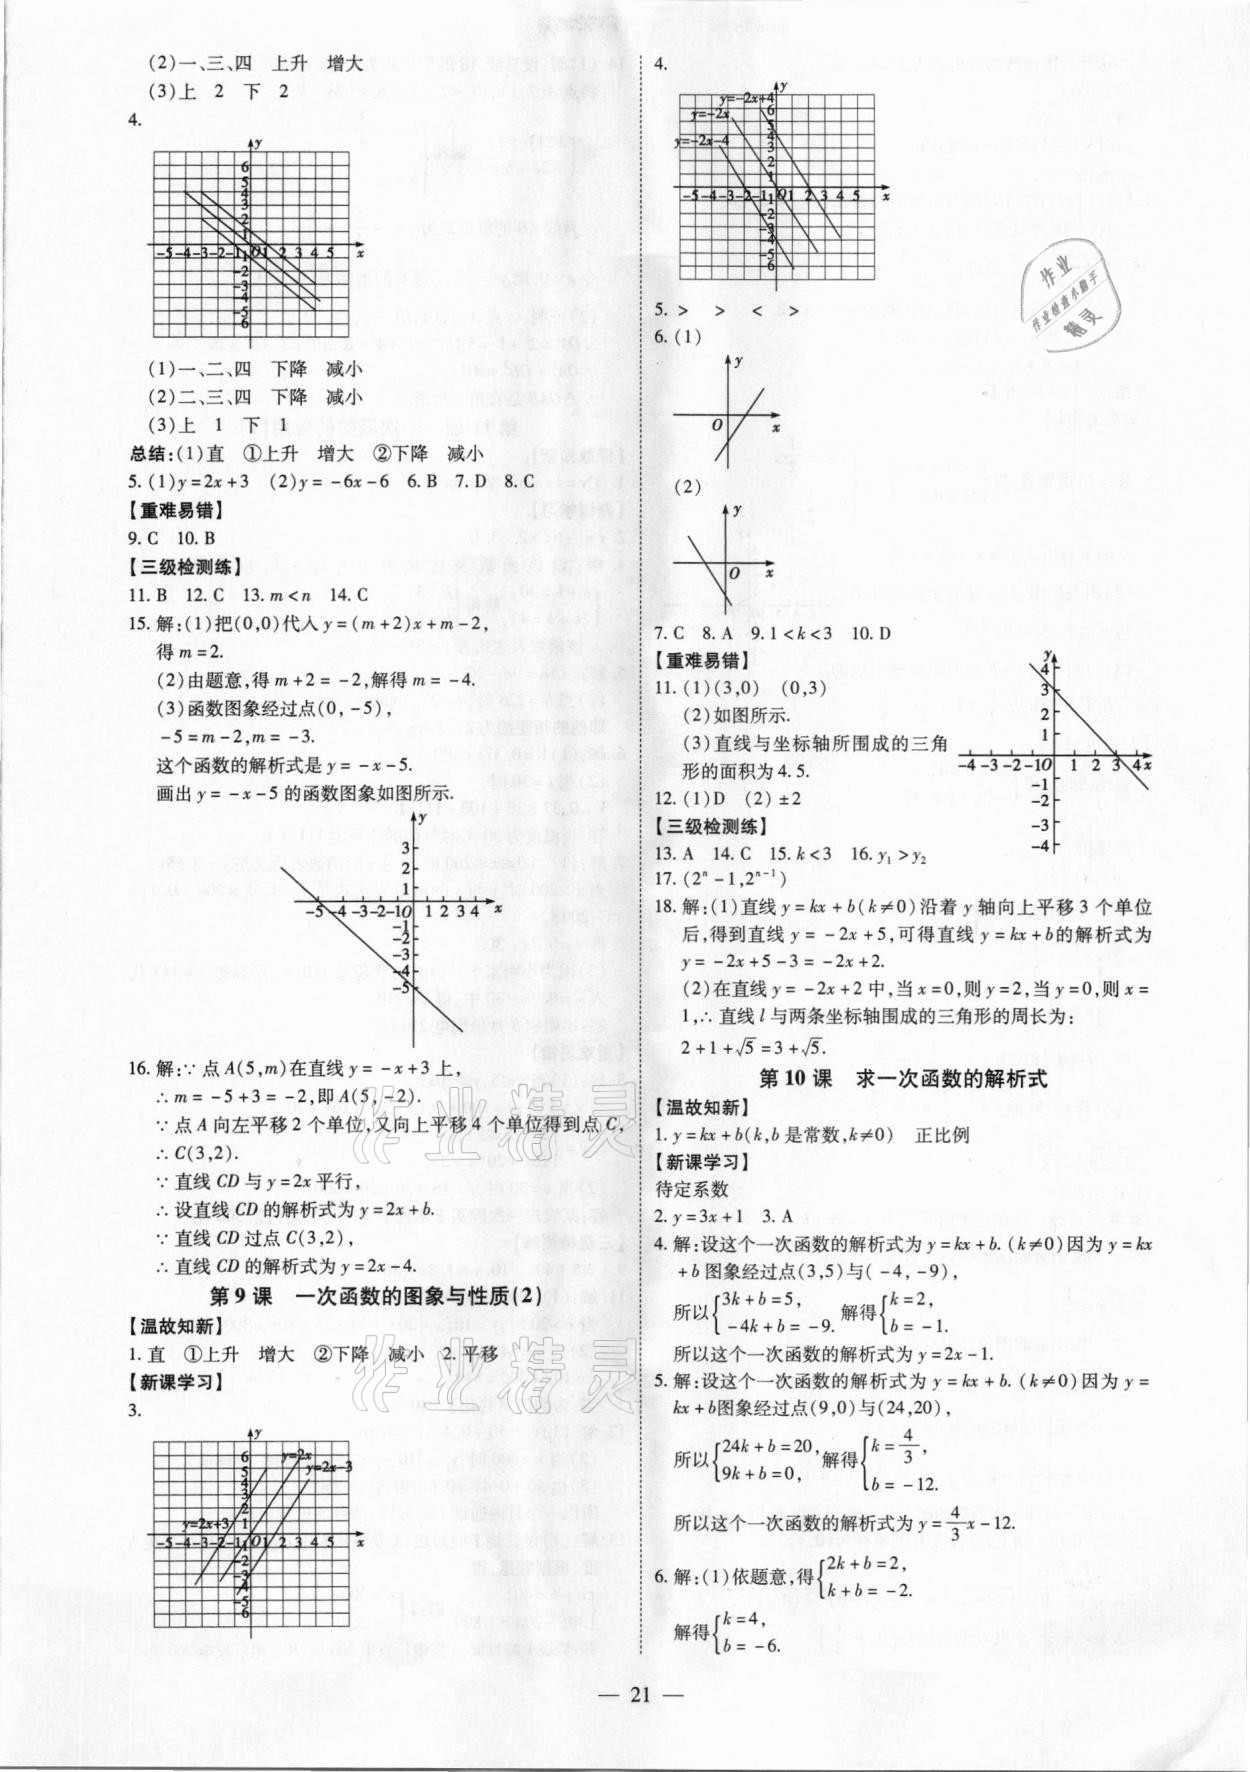 (2)一、三、四　上升　增大
(3)上　2　下　2
4.
y
6
5
4
3
2
1
-5 -4 -3 -2 -1 O 1 2 3 4 5 x
-1
-2
-3
-4
-5
-6
(1)一、二、四　下降　减小
(2)二、三、四　下降　减小
(3)上　1　下　1
总结:(1)直　①上升　增大　②下降　减小
5.(1)y=2x+3　(2)y=-6x-6　6.B　7.D　8.C
【重难易错】
9.C　10.B
【三级检测练】
11.B　12.C　13.m<n　14.C
15.解:(1)把(0,0)代入y=(m+2)x+m-2,
得m=2.
(2)由题意,得m+2=-2,解得m=-4.
(3)函数图象经过点(0,-5),
-5=m-2,m=-3.
这个函数的解析式是y=-x-5.
画出y=-x-5的函数图象如图所示.
y
3
2
1
-5 -4 -3 -2 -1 O 1 2 3 4 x
-1
-2
-3
-4
-5
16.解:∵点A(5,m)在直线y=-x+3上,
∴m=-5+3=-2,即A(5,-2).
∵点A向左平移2个单位,又向上平移4个单位得到点C,
∴C(3,2).
∵直线CD与y=2x平行,
∴设直线CD的解析式为y=2x+b.
∵直线CD过点C(3,2),
∴直线CD的解析式为y=2x-4.
第9课　一次函数的图象与性质(2)
【温故知新】
1.直　①上升　增大　②下降　减小　2.平移
【新课学习】
3.
y
y=2x
y=2x-3
y=2x+3
6
5
4
3
2
1
-5 -4 -3 -2 -1 O 1 2 3 4 5 x
-1
-2
-3
-4
-5
-6
4.
y=-2x+4
y=-2x
y=-2x-4
y
6
5
4
3
2
1
-5 -4 -3 -2 -1 O 1 2 3 4 5 x
-1
-2
-3
-4
-5
-6
5.>　>　<　>
6.(1)
y
O x
(2)
y
O x
7.C　8.A　9.1<k<3　10.D
【重难易错】
11.(1)(3,0)　(0,3)
(2)如图所示.
(3)直线与坐标轴所围成的三角
形的面积为4.5.
y
4
3
2
1
-4 -3 -2 -1 O 1 2 3 4 x
-1
-2
-3
-4
12.(1)D　(2)±2
【三级检测练】
13.A　14.C　15.k<3　16.y₁>y₂
17.(2ⁿ-1,2ⁿ⁻¹)
18.解:(1)直线y=kx+b(k≠0)沿着y轴向上平移3个单位
后,得到直线y=-2x+5,可得直线y=kx+b的解析式为
y=-2x+5-3=-2x+2.
(2)在直线y=-2x+2中,当x=0,则y=2,当y=0,则x=
1,∴直线l与两条坐标轴围成的三角形的周长为:
2+1+√5=3+√5.
第10课　求一次函数的解析式
【温故知新】
1.y=kx+b(k,b是常数,k≠0)　正比例
【新课学习】
待定系数
2.y=3x+1　3.A
4.解:设这个一次函数的解析式为y=kx+b.(k≠0)因为y=kx
+b图象经过点(3,5)与(-4,-9),
所以{3k+b=5, -4k+b=-9. 解得{k=2, b=-1.
所以这个一次函数的解析式为y=2x-1.
5.解:设这个一次函数的解析式为y=kx+b.(k≠0)因为y=
kx+b图象经过点(9,0)与(24,20),
所以{24k+b=20, 9k+b=0, 解得{k=4/3, b=-12.
所以这个一次函数的解析式为y=4/3x-12.
6.解:(1)依题意,得{2k+b=2, k+b=-2.
解得{k=4, b=-6.
— 21 —
作业
作业检查小助手
精灵
作业精灵
作业精灵